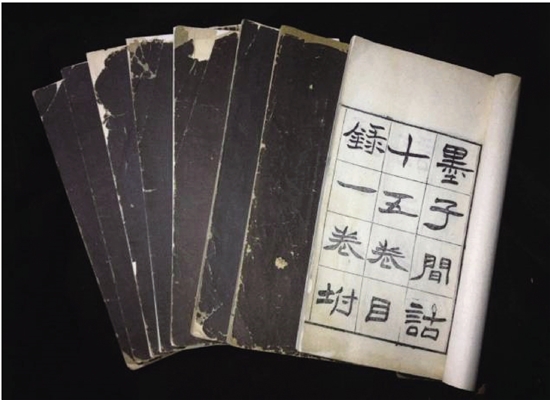 墨子閒詁
十五卷目
録一卷坿